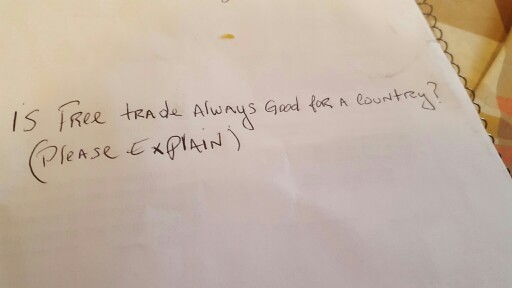 IS Free trade Always Good for A Country?
(Please Explain)